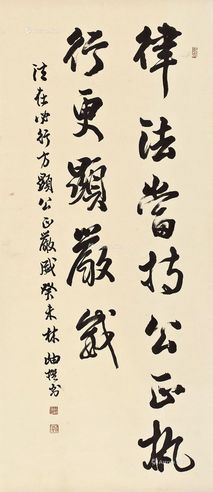 律法當持公正執
行更顯嚴威
法在必行方顯公正嚴威癸未林